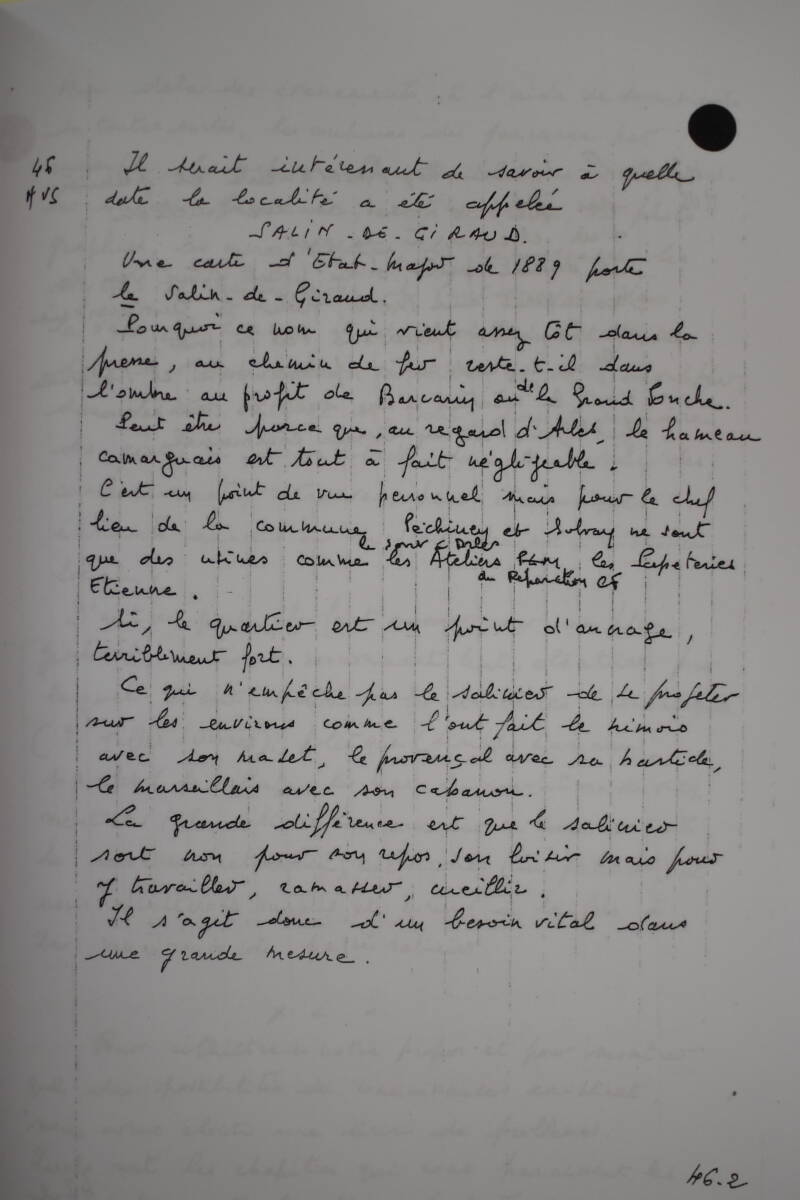 46 Il serait intéressant de savoir à quelle
date la localité a été appelée
SALIN-DE-GIRAUD.
Une carte d'Etat-Major de 1889 porte
le Salin-de-Giraud.
Pourquoi ce nom qui vient assez tôt dans la
presse, au chemin de fer reste-t-il dans
l'ombre au profit de Barcarin ou de la Grand Ponche.
Peut être parce que, au regard d'Arles, le hameau
camarguais est tout à fait négligeable.
C'est un point de vue personnel mais pour le chef
lieu de la commune Péchiney et Solvay ne sont
que des usines comme les Ateliers les Papeteries
de Réparation
Etienne.
Ici, le quartier est un point d'ancrage,
terriblement fort.
Ce qui n'empêche pas le salinier de se projeter
sur les environs comme l'ont fait le nimois
avec son maset, le provençal avec sa bastide,
le marseillais avec son cabanon.
La grande différence est que le salinier
sort non pour son repos, son loisir mais pour
y travailler, ramasser, cueillir.
Il s'agit donc d'un besoin vital dans
une grande mesure.
46.2